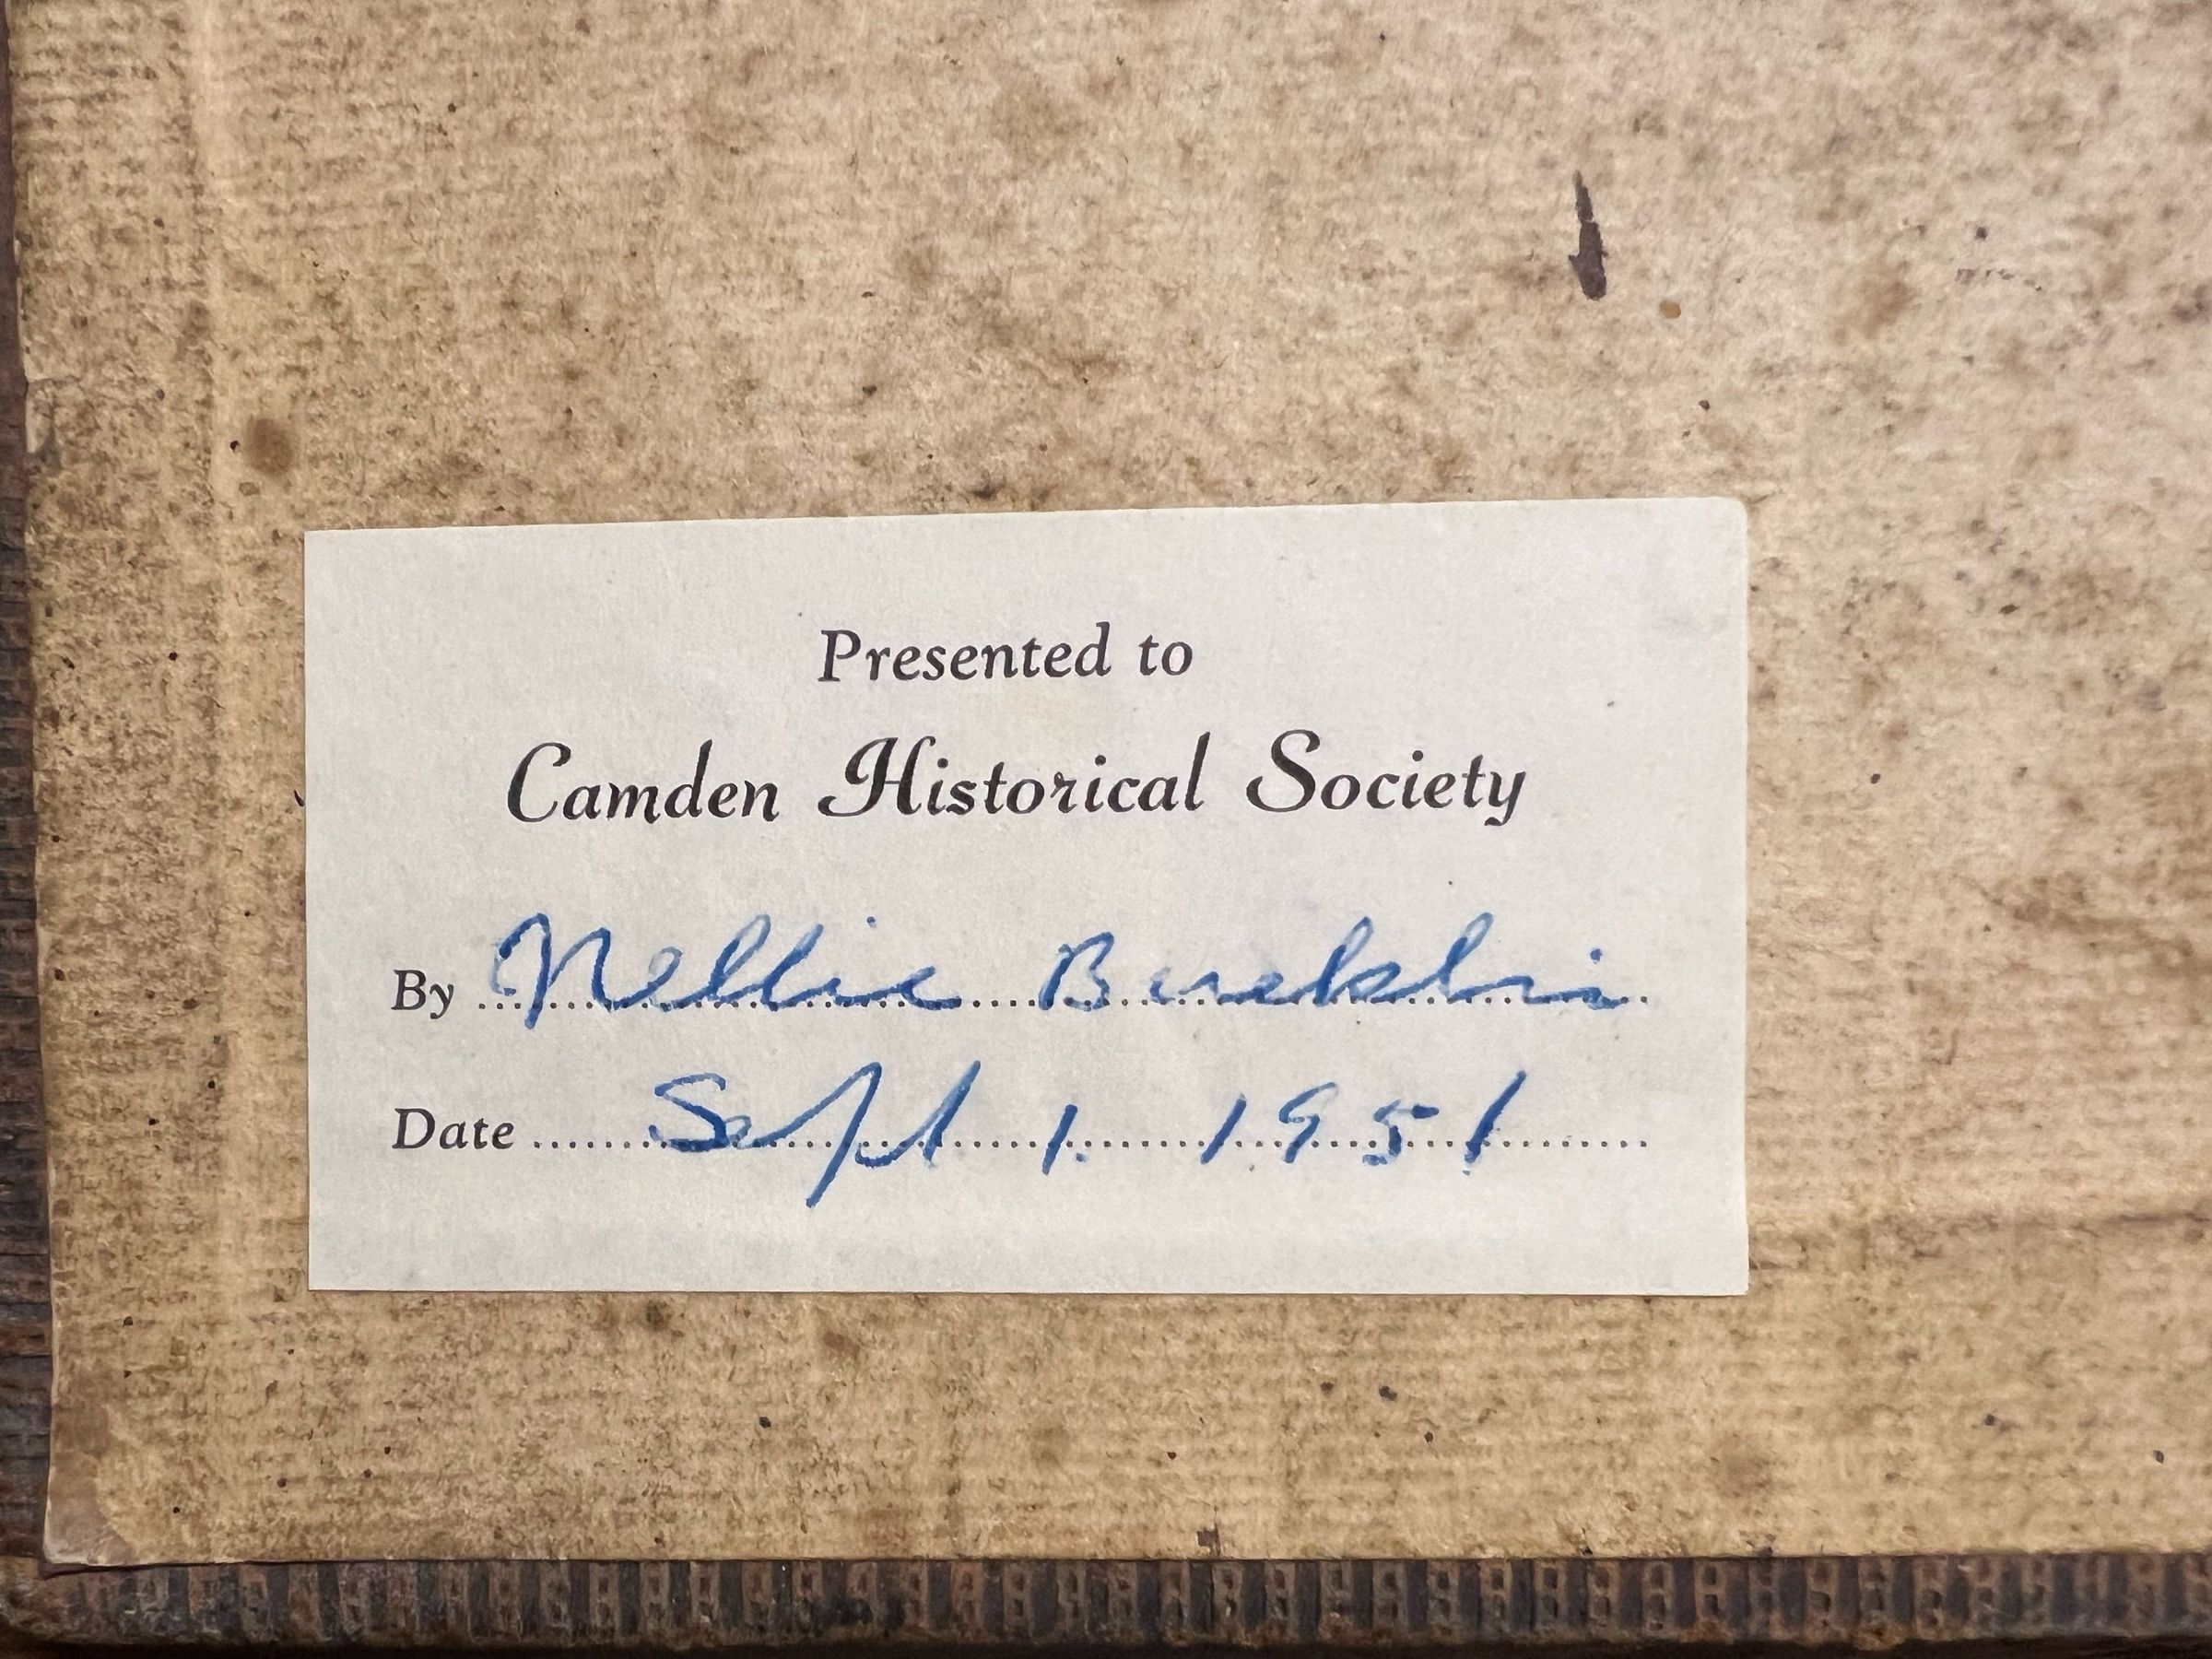 Presented to
Camden Historical Society
By Nellie
Date Sept 1. 1951